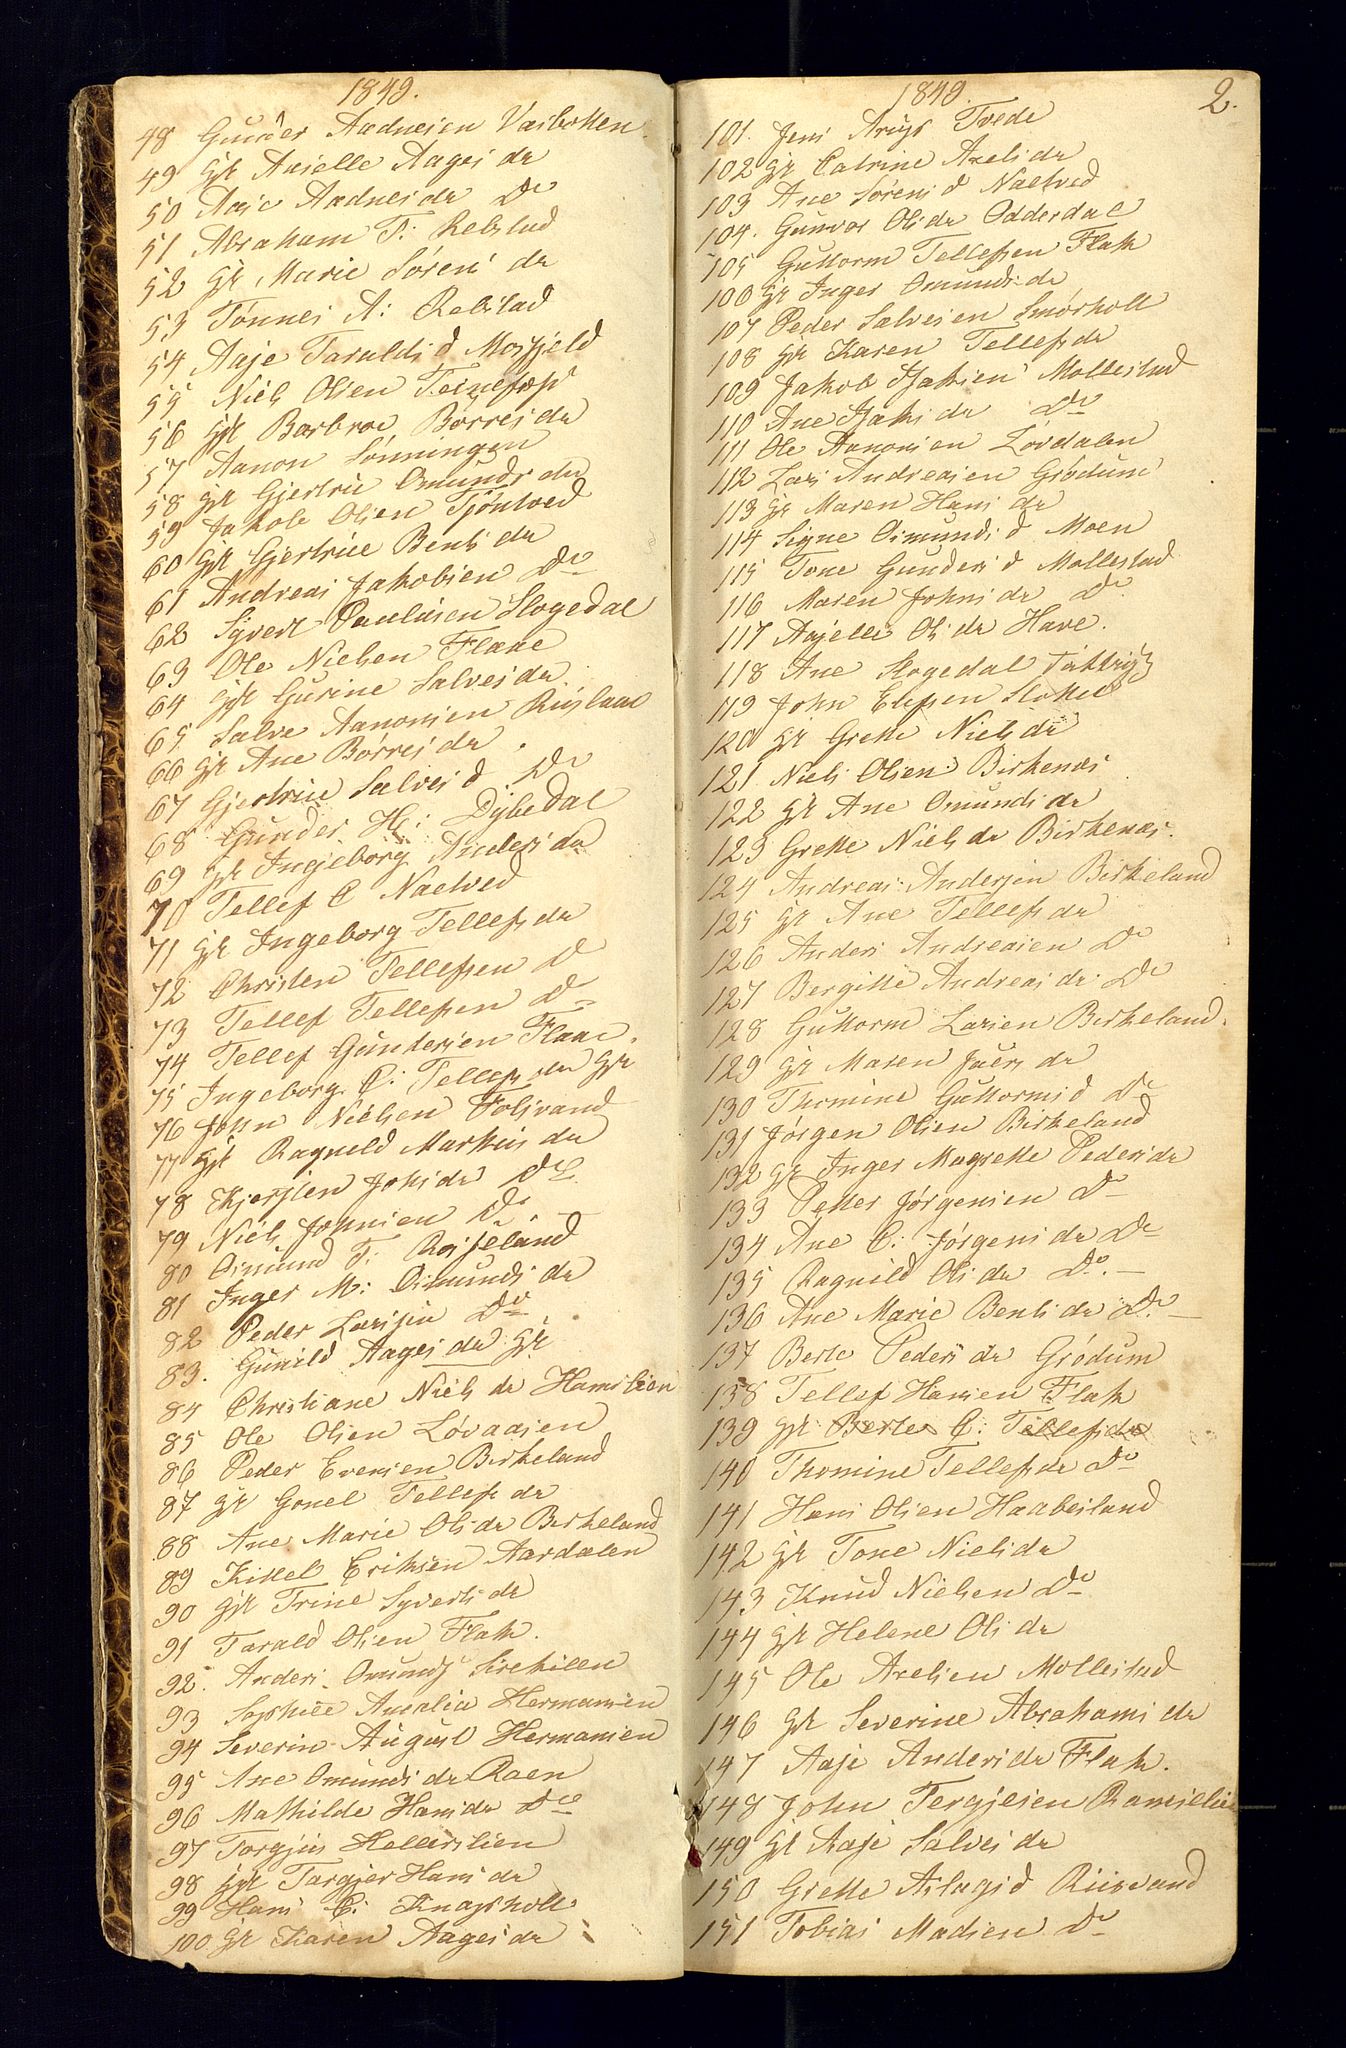 1849.
48 Gunder Aadnesen Væsboken.
49 Gk Anselle Aages dr
50 Aase Aadnes dr Do
51 Abraham T: Rebstad
52 Gk Marie Sørens dr
53 Tønnes A: Rebstad
54 Aaje Taralds d Mosfjeld
55 Niels Olsen
56 Gk Barbroe Børres dr
57 Aanon Sønningen
58 Gk Gjertrue Omunds dr
59 Jakob Olsen Tjøntved
60 Gk Gjertrue Bents dr
61 Andreas Jakobsen Do
62 Syvert Paulsen Slogedal
63 Ole Nielsen Flaae
64 Gk Gurine Salves dr.
65 Salve Aanonsen Riislaae
66 Gk Ane Børres dr.
67 Gjertrue Salves d Do
68 Gunder H: Dybedal
69 Gk Ingeborg Anders dr
70 Tellef C Naetved
71 Gk Ingeborg Tellefs dr
72 Christen Tellefsen D
73 Tellef Tellefsen Do
74 Tellef Gundersen Flaae.
75 Ingeborg C: Tellefs dr Gk
76 John Nielsen Tolivand
77 Gk Ragnild Markus dr
78 Kjersten Johs dr Do
79 Niels Johnsen Do.
80 Osmund T: Rosseland
81 Inger M: Osmunds dr
82 Peder Larsen Do
83. Gunild Aages dr Gk
84 Christiane Niels dr Hamslien
85 Ole Olsen Løvaasen
86 Peder Evensen Birkeland
87 Gk Gonel Tellefs dr
88 Ane Marie Ols dr Berkeland
89 Kittel Eriksen Aardalen
90 Gk Trine Syverts dr
91 Tarald Olsen Flak.
92. Anders Omunds Sirekilen
93 Sophiee Amalia Hermansen
94 Severin August Hermansen
95 Ane Omunds dr Roen
96 Mathilde Hans dr Do
97 Torgjus Hellerslien
98 Gk Targjer Hans dr
99 Hans C: Knapsholt
100 Gk Karen Aages dr
1849. 2.
101. Jens Arup Tvede
102 Gk Catrine Axels dr
103 Ane Sørens d Naetved
104. Gunvor Ols dr Odderdal
105 Guttorm Tellefsen Flak
106 Gk Inger Omunds dr
107 Peder Salvesen Smørholt
108 Gk Karen Tellefs dr
109 Jakob Isaksen Mollestad
110 Ane Isaks dr Do
111 Ole Aanonsen Løvdalen
112 Lars Andreasen Grødum
113 Gk Maren Hans dr
114 Signe Osmunds d Moen
115 Tone Gunders d Mollestad
116 Maren Johns dr Do.
117 Anselle Ols dr Have.
118 Ane Slogedal
119 John Elefsen Slottet
120 Gk Grette Niels dr
121 Niels Olsen Birkenæs
122 Gk Ane Omunds dr
123 Grette Niels dr Birkenæs.
124 Andreas Andersen Birkeland
125 Gk Ane Tellefs dr
126 Anders Andreasen Do
127 Bergitte Andreas dr Do
128 Guttorm Larsen Birkeland.
129 Gk Maren Juers dr
130 Thomine Guttorms d Do
131 Jørgen Olsen Birkeland
132 Gk Inger Magrette Peders dr
133 Petter Jørgensen Do
134 Ane C: Jørgens dr Do
135 Ragnild Ols dr Do.
136 Ane Marie Bents dr Do.
137 Berte Peders dr Grødum
138 Tellef Hansen Flak
139 Gk Berte C: Tellefsdr
140 Thomine Tellefs dr Do
141 Hans Olsen Haabesland
142 Gk Tone Niels dr
143 Knud Nielsen Do
144 Gk Helene Ols dr
145 Ole Axelsen Mollestad
146 Gk Severine Abrahams dr
147 Aase Anders dr Flak.
148 John Tergjesen Ramselie
149 Gk Aase Salves dr
150 Grette Aslags d Riisvand
151 Tobias Madsen Do